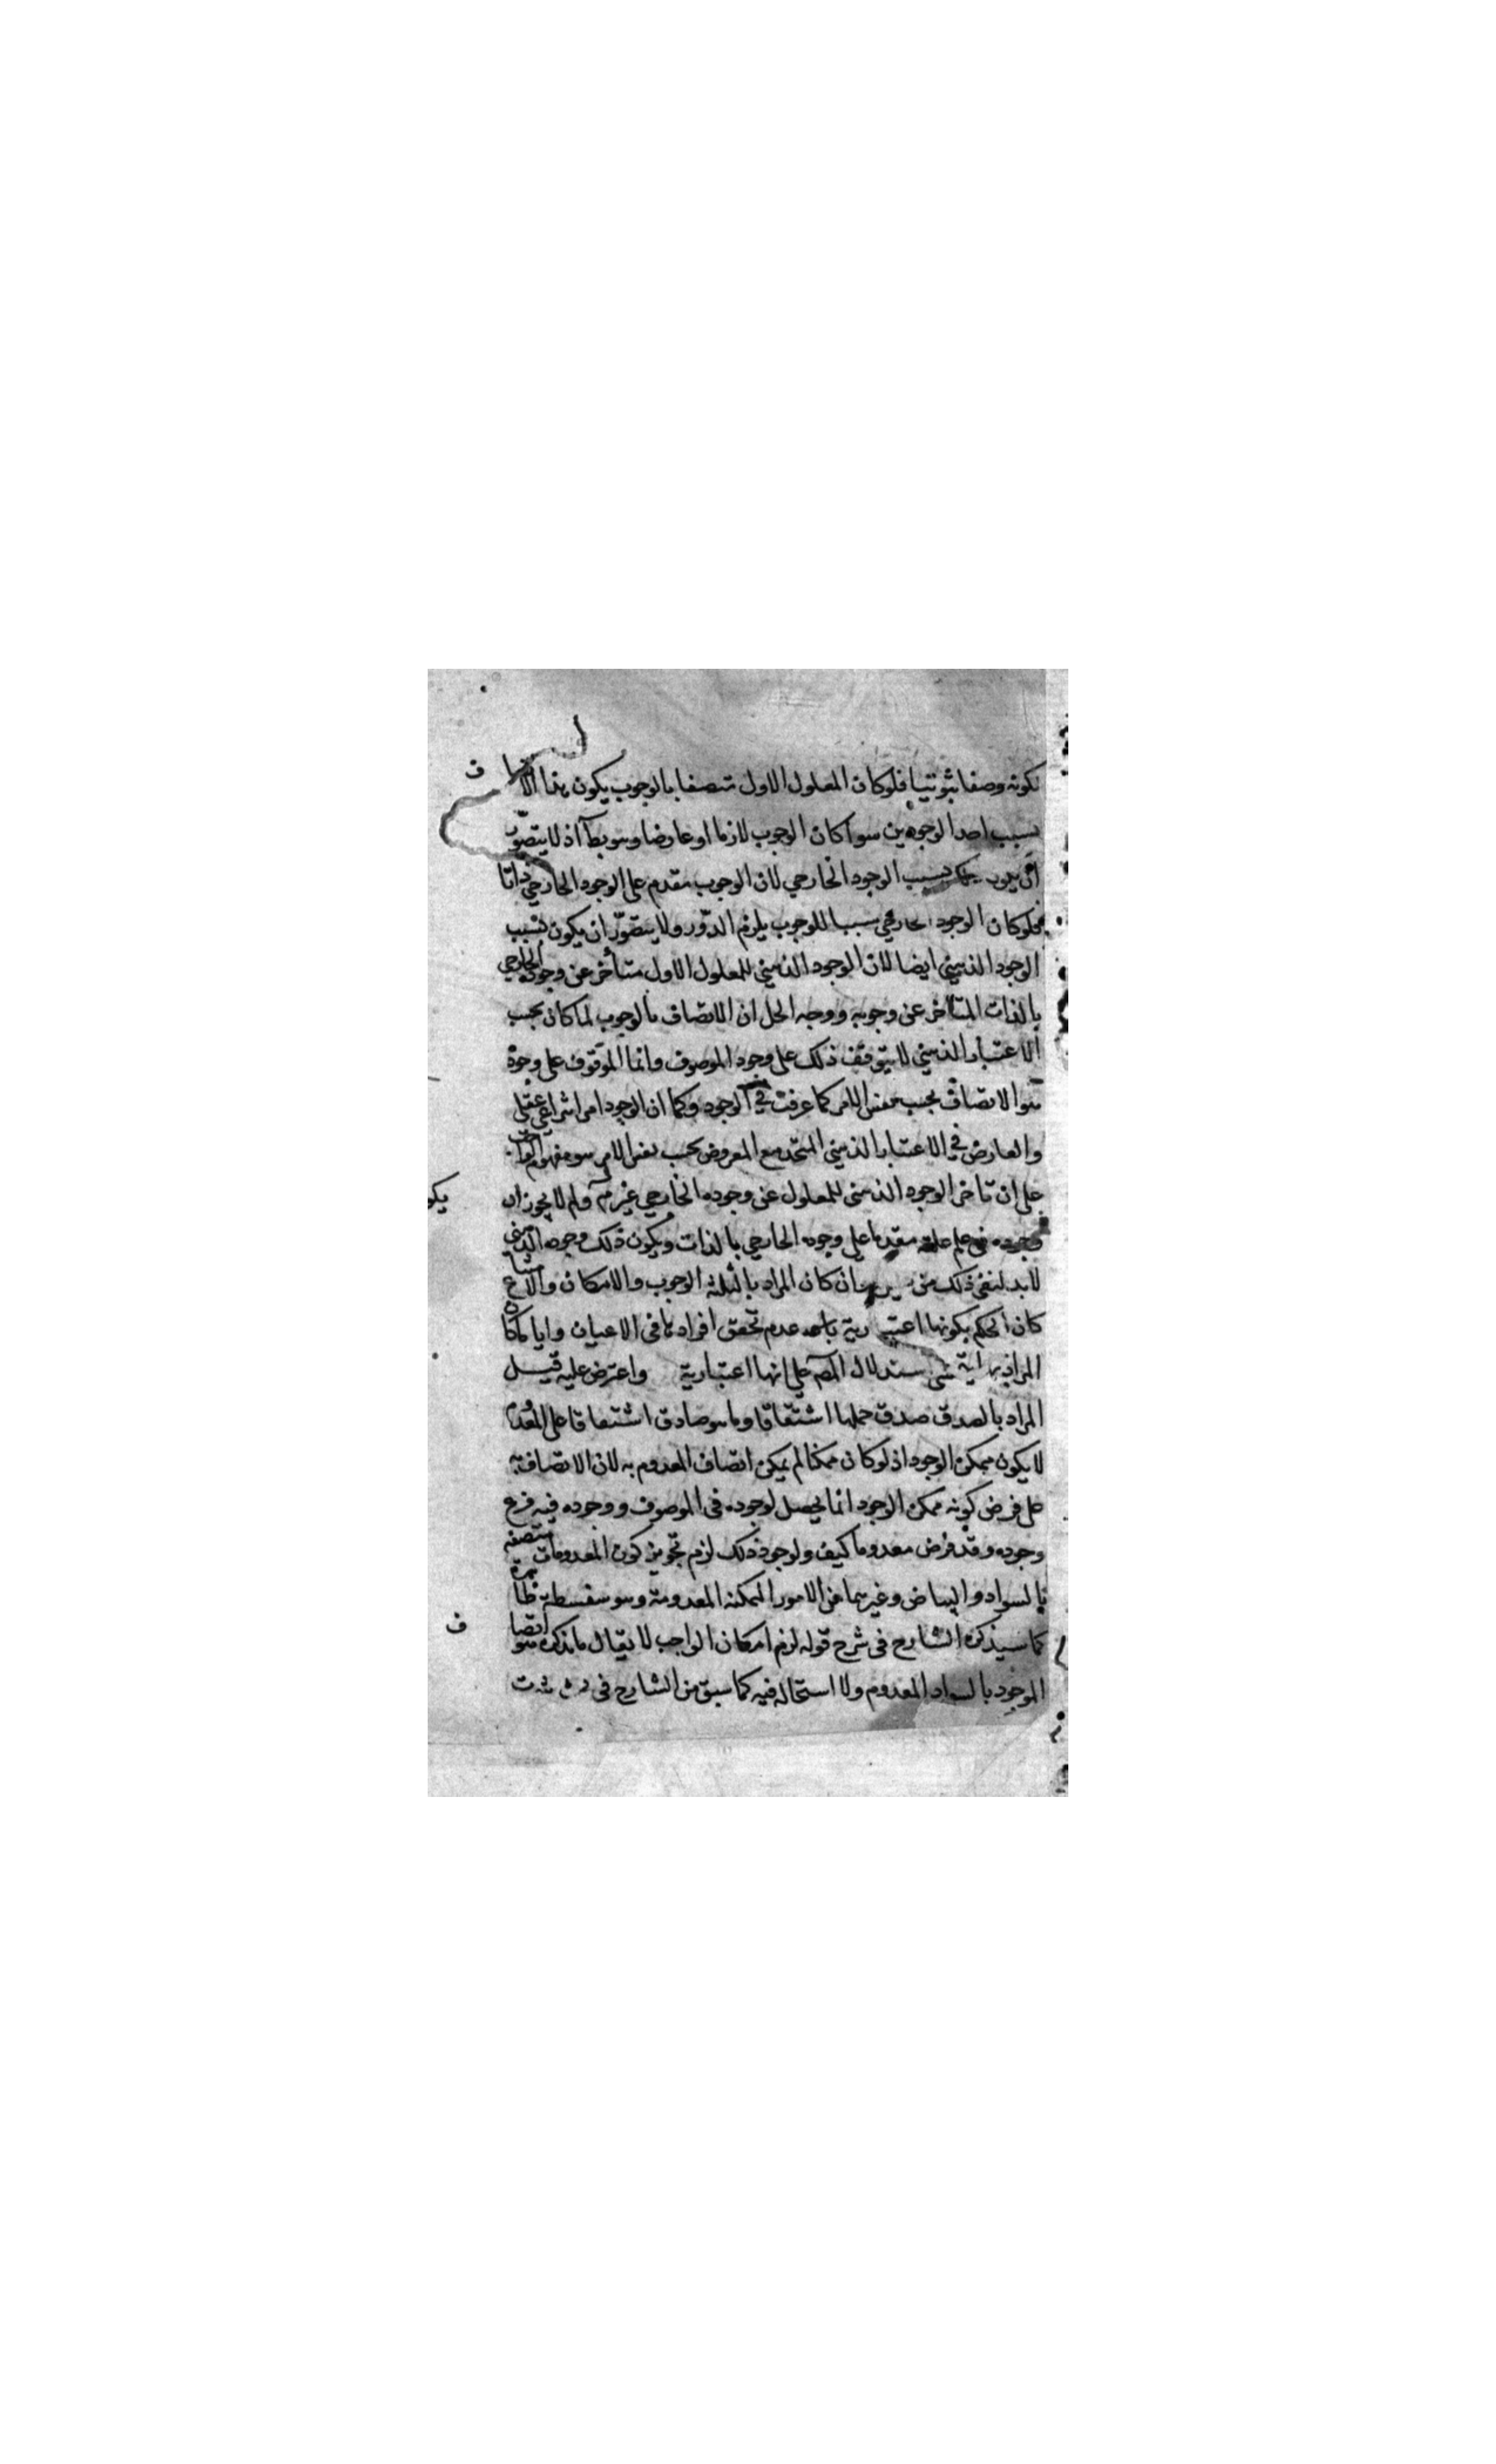 لكونه وصفا ثبوتيا فلو كان المعلول الاول متصفا بالوجوب يكون هذا الاتصاف
بسبب احد الوجودين سوآ كان الوجوب لازما او عارضا وهو بط اذ لا يتصوّر
ان يكون بسبب الوجود الخارجي لان الوجوب مقدم على الوجود الخارجي ذاتا
فلو كان الوجود الخارجي سببا للوجوب يلزم الدّور ولا يتصوّر ان يكون بسبب
الوجود الذهني ايضا لان الوجود الذهني للمعلول الاول متأخر عن وجوده الخارجي
بالذات المتأخر عن وجوبه ووجه الحل ان الاتصاف بالوجوب لما كان بحسب
الاعتبار الذهني لا يتوقف ذلك على وجود الموصوف وانما الموقوف على وجوده
هو الاتصاف بحسب نفس الامر كما عرفت في الوجود وكما ان الوجود امر انتزاعي عقلي
والعارض في الاعتبار الذهني المتحد مع المعروض بحسب نفس الامر هو مفهوم الواجب
على ان تاخر الوجود الذهني للمعلول عن وجوده الخارجي غير مم ولم لا يجوز ان يكو
وجوده في علم علته مقدما على وجوده الخارجي بالذات ويكون ذلك وجوده الذهني
لا بد لنفي ذلك من ان كان المراد بالثلثة الوجوب والامكان والامتناع
كان الحكم بكونها اعتبارية عدم تحقق افرادها في الاعيان وايا ما كان
المراد استدلال المص على انها اعتبارية واعترض عليه قيل
المراد بالصدق صدق حملها اشتقاقا وما هو صادق اشتقاقا على المعدوم
لا يكون ممكن الوجود اذ لو كان ممكنا لم يمكن اتصاف المعدوم به لان الاتصاف به
على فرض كونه ممكن الوجود انما يحصل لوجوده في الموصوف ووجوده فيه فرع
وجوده وقد فرض معدوما كيف ولو جوز ذلك لزم تجويز كون المعدومات متصفة
بالسواد والبياض وغيرهما من الامور الممكنة المعدومة وهو سفسطة ظاهرة
كما سيذكره الشارح في شرح قوله لزم امكان الواجب لا يقال ما ذكره هو اتصاف
الموجود بالسواد المعدوم ولا استحالة فيه كما سبق من الشارح في